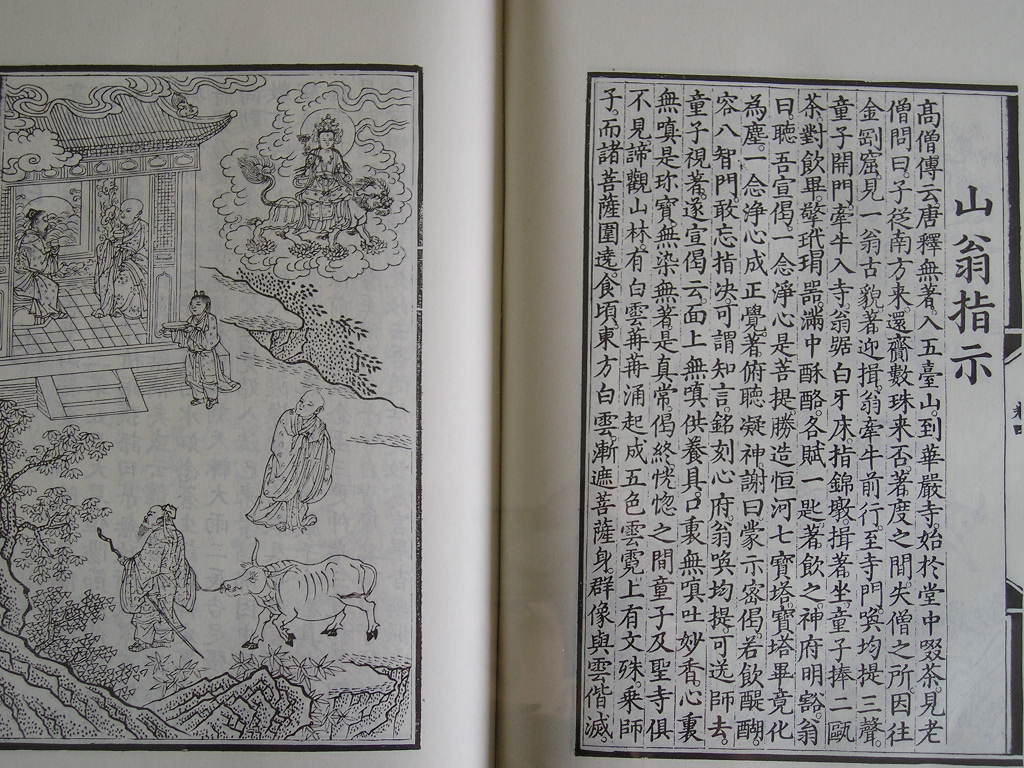 山翁指示
高僧傳云唐釋無著。入五臺山。到華嚴寺始於堂中啜茶。見老
僧問曰。子從南方来還齎數珠来否著度之間。失僧之所因往
金剛窟。見一翁古貌。著迎揖。翁牽牛前行至寺門。喚均提三聲。
童子開門。牽牛入寺翁踞白牙床。指錦墩。揖著坐。童子捧二甌
茶。對飲畢。擎玳瑁器。滿中酥酪。各賦一匙。著飲之。神府明豁。翁
曰。聽吾宣偈。一念淨心是菩提。勝造恒河七寶塔。寶塔畢竟化
為塵。一念淨心成正覺。著俯聽凝神。謝曰。蒙示密偈若飲醍醐。
容入智門。敢忘指決。可謂知言。銘刻心府。翁喚均提可送師去。
童子視著。遂宣偈云。面上無嗔供養具。口裏無嗔吐妙香。心裏
無嗔是珍寶。無染無著是真常。偈終。恍惚之間。童子及聖寺俱
不見。諦觀山林。有白雲冉冉涌起。成五色雲霓。上有文殊乘師
子。而諸菩薩圍遶。食頃。東方白雲漸遮菩薩身。群像與雲偕滅。